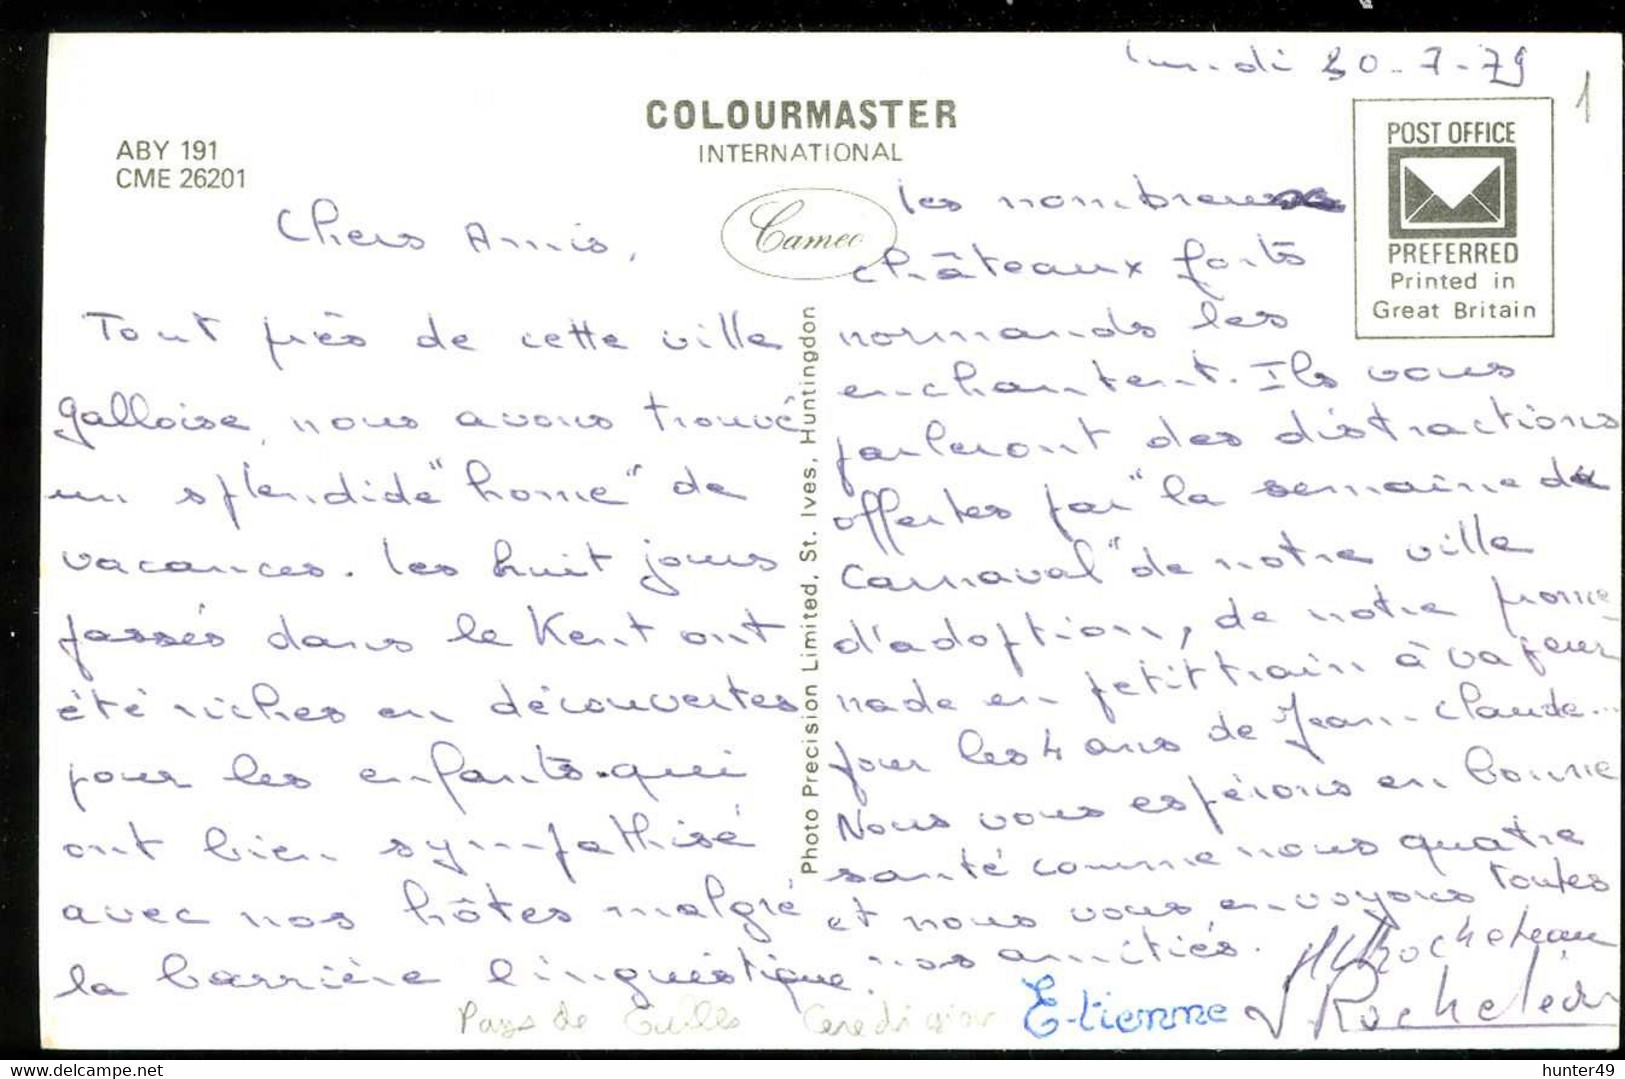 lundi 30-7-79
1
COLOURMASTER
INTERNATIONAL
ABY 191
CME 26201
Cameo
POST OFFICE
PREFERRED
Printed in
Great Britain
Chers Amis,
Tout près de cette ville
galloise, nous avons trouvé
un splendide "home" de
vacances. Les huit jours
passés dans le Kent ont
été riches en découvertes
pour les enfants qui
ont bien sympathisé
avec nos hôtes malgré
la barrière linguistique.
Photo Precision Limited, St. Ives, Huntingdon
Les nombreux
châteaux forts
normands les
enchantent. Ils vous
parleront des distractions
offertes par "la semaine de
Carnaval" de notre ville
d'adoption, de notre prome
nade en petit train à vapeur
pour les 4 ans de Jean-Claude...
Nous vous espérons en bonne
santé comme nous quatre
et nous vous envoyons toutes
nos amitiés.
Rocheteau
Rocheteau
Etienne
Pays de Galles Ceredigion
hunter49